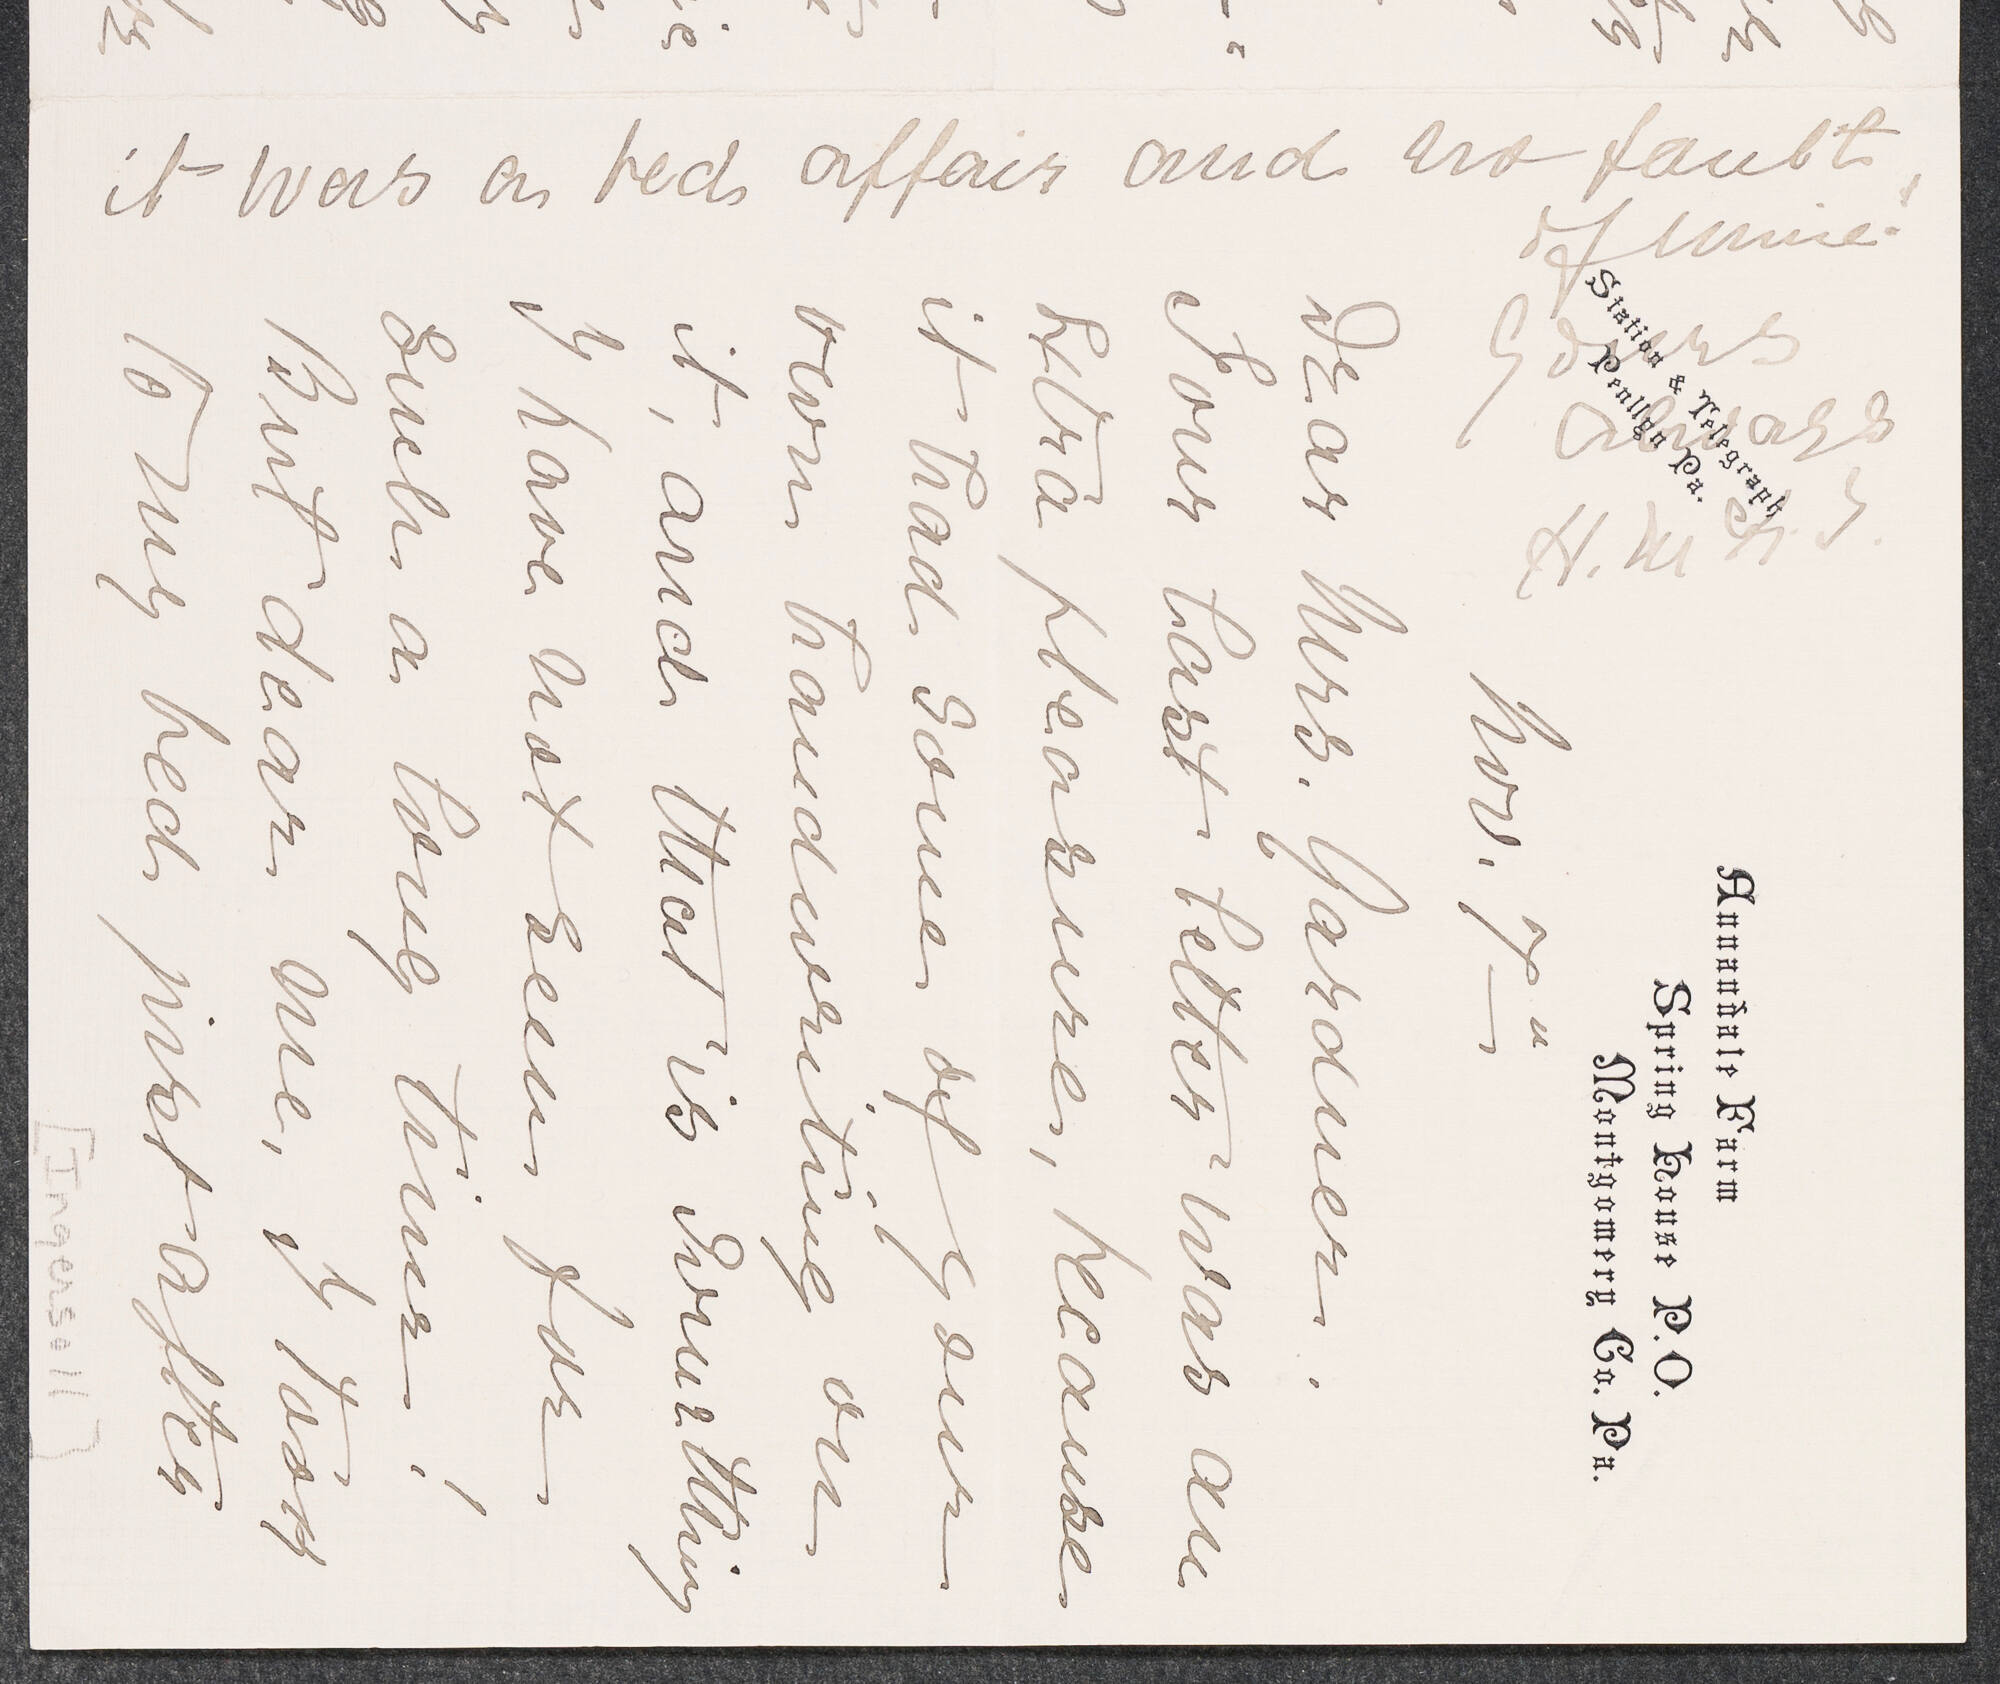 Annandale Farm
Spring House P.O.
Montgomery Co. Pa.
Station & Telegraph
Penllyn Pa.
Nov. 7"
Dear Mrs. Gardner:
Your last letter was an
extra pleasure, because
it had some of your
own handwriting on
it, and that is something
I have not seen for
such a long time!
But dear me, I took
to my bed just after
it was a bed affair and no fault
of mine!
Yours
always
[Ingersoll]